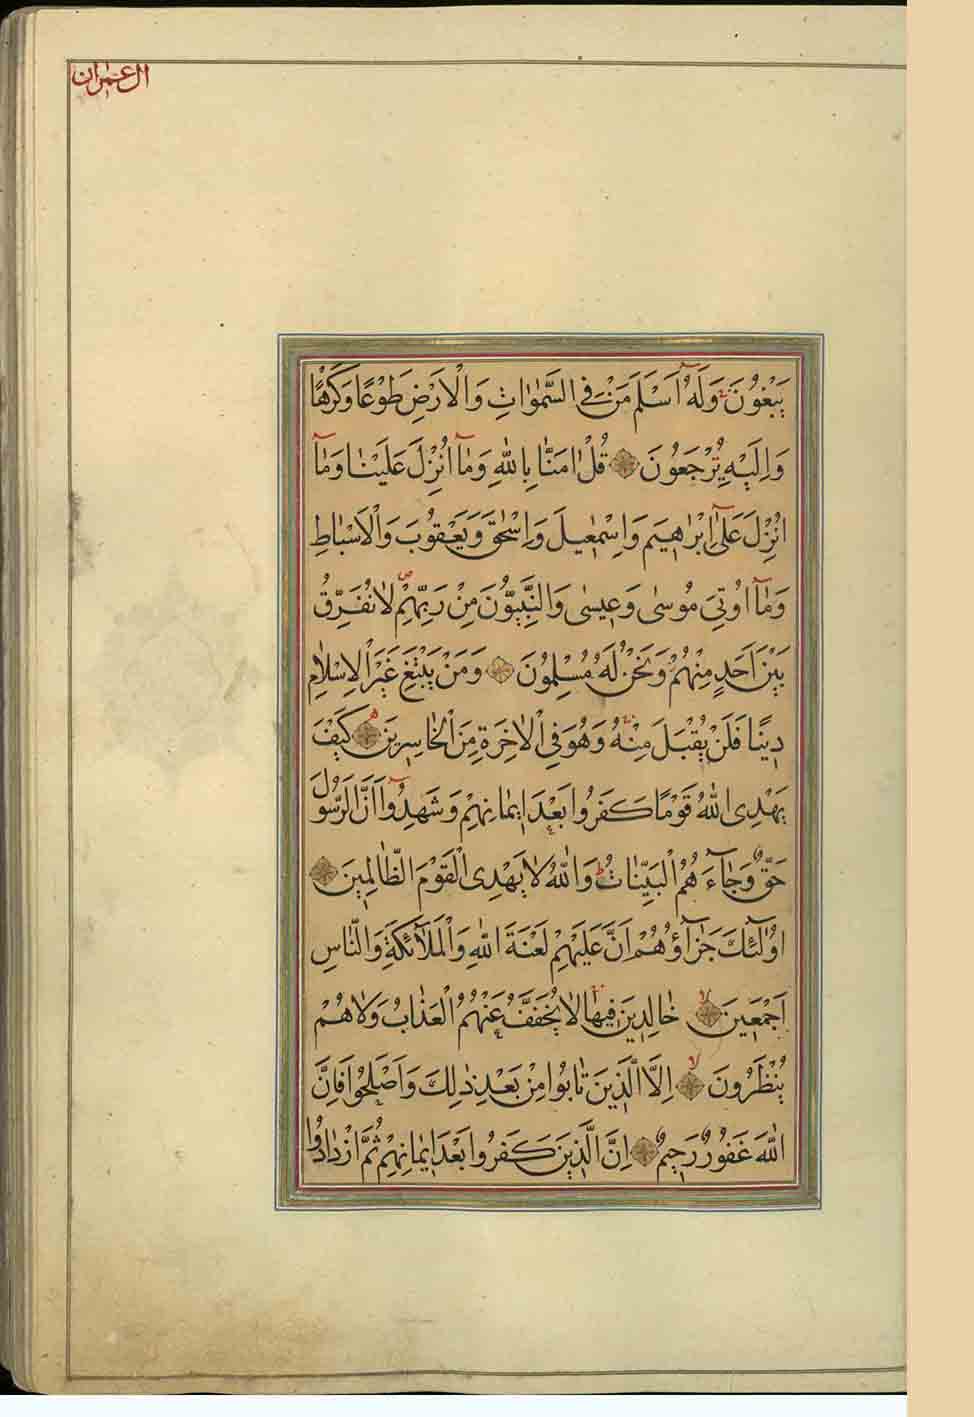 ال عمران
يَبْغُونَ وَلَهُٓ اَسْلَمَ مَنْ فِي السَّمٰوَاتِ وَالْاَرْضِ طَوْعًا وَكَرْهًا
وَاِلَيْهِ يُرْجَعُونَ قُلْ اٰمَنَّا بِاللّٰهِ وَمَٓا اُنْزِلَ عَلَيْنَا وَمَٓا
اُنْزِلَ عَلٰٓى اِبْرٰاهِيمَ وَاِسْمٰعِيلَ وَاِسْحٰقَ وَيَعْقُوبَ وَالْاَسْبَاطِ
وَمَٓا اُوتِيَ مُوسٰى وَعِيسٰى وَالنَّبِيُّونَ مِنْ رَبِّهِمْ لَا نُفَرِّقُ
بَيْنَ اَحَدٍ مِنْهُمْ وَنَحْنُ لَهُ مُسْلِمُونَ وَمَنْ يَبْتَغِ غَيْرَ الْاِسْلَامِ
دِينًا فَلَنْ يُقْبَلَ مِنْهُ وَهُوَ فِي الْاٰخِرَةِ مِنَ الْخَاسِرِينَ كَيْفَ
يَهْدِى اللّٰهُ قَوْمًا كَفَرُوا بَعْدَ اِيمَانِهِمْ وَشَهِدُٓوا اَنَّ الرَّسُولَ
حَقٌّ وَجَٓاءَهُمُ الْبَيِّنَاتُ وَاللّٰهُ لَا يَهْدِى الْقَوْمَ الظَّالِمِينَ
اُولٰٓئِكَ جَزَٓاؤُهُمْ اَنَّ عَلَيْهِمْ لَعْنَةَ اللّٰهِ وَالْمَلٰٓئِكَةِ وَالنَّاسِ
اَجْمَعِينَ خَالِدِينَ فِيهَا لَا يُخَفَّفُ عَنْهُمُ الْعَذَابُ وَلَا هُمْ
يُنْظَرُونَ اِلَّا الَّذِينَ تَابُوا مِنْ بَعْدِ ذٰلِكَ وَاَصْلَحُوا فَاِنَّ
اللّٰهَ غَفُورٌ رَحِيمٌ اِنَّ الَّذِينَ كَفَرُوا بَعْدَ اِيمَانِهِمْ ثُمَّ ازْدَادُوا